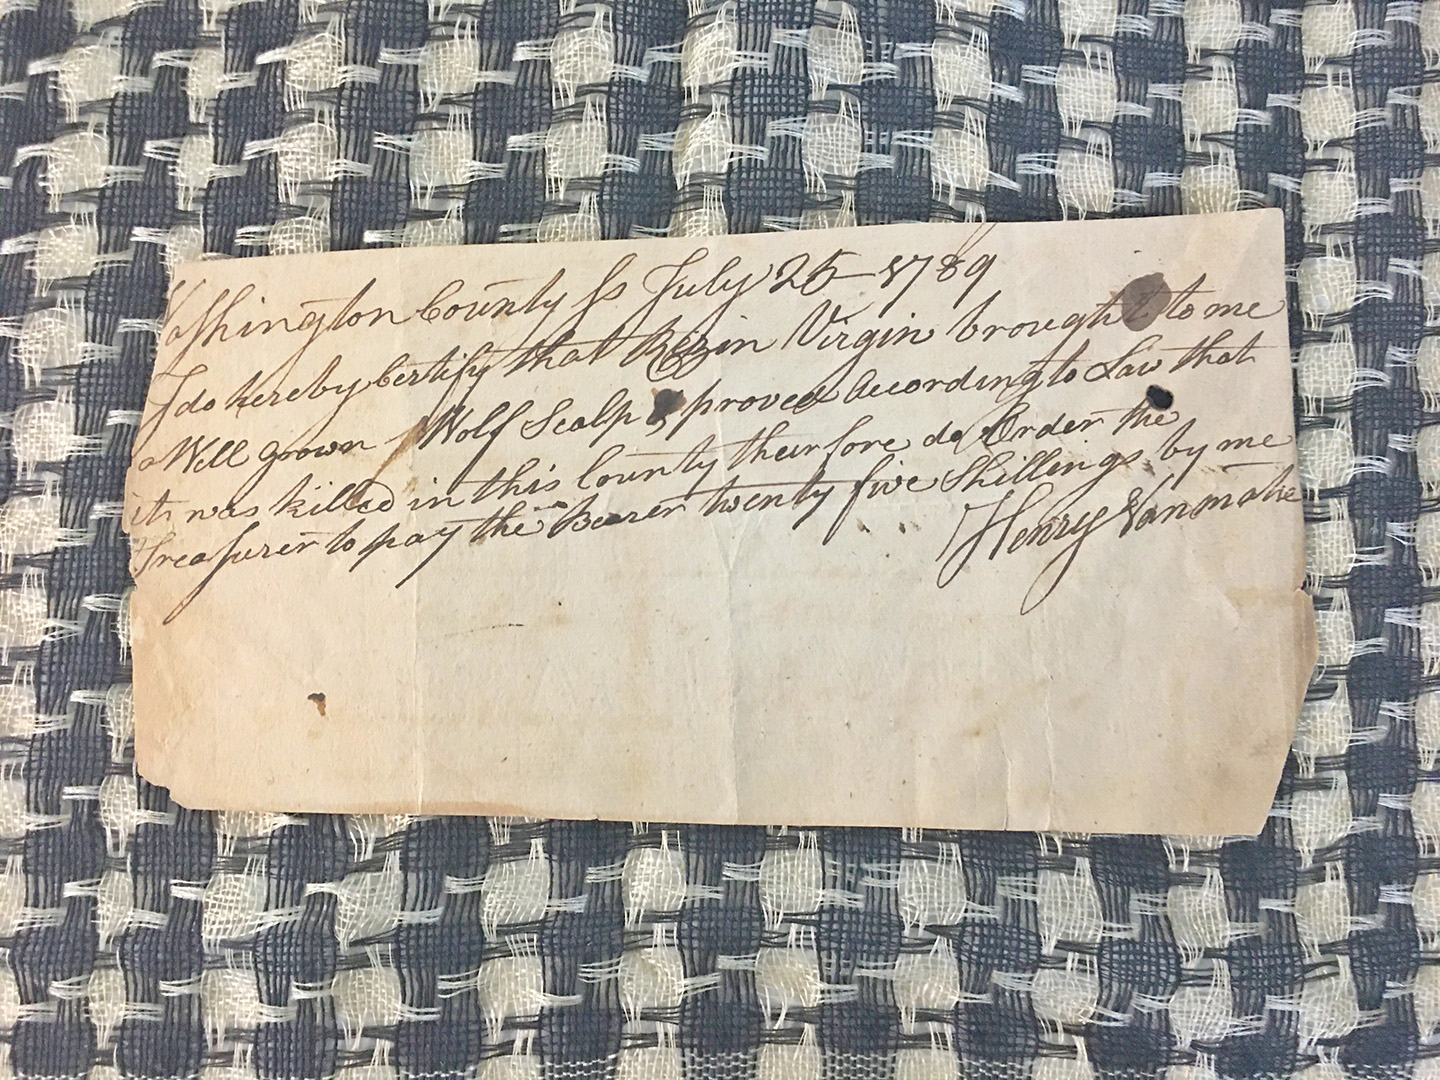 Washington County Ss July 25 1789
I do hereby Certify that Rezin Virgin brought to me
a Well grown Wolf Scalp & proved According to Law that
it was killed in this County theirfore do Order the
Treasurer to pay the Bearer twenty five Shillings by me
Henry Vanmatre